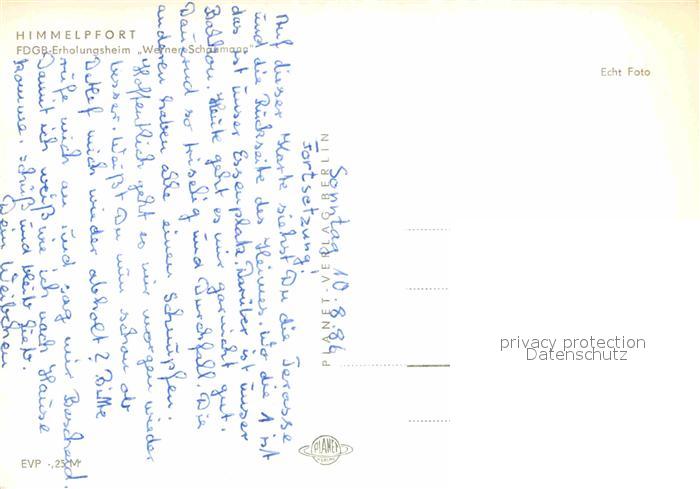 HIMMELPFORT
FDGB-Erholungsheim „Werner Schaumann"
Echt Foto
Sonntag 10.8.84
Fortsetzung!
Auf dieser Karte siehst Du die Terasse
und die Rückseite des Heimes. Wo die 1 ist
das ist unser Essenplatz. Darüber ist unser
Balkon. Heute geht es mir garnicht gut.
Dauernd so frieselig und Durchfall. Die
anderen haben alle einen Schnupfen.
Hoffentlich geht es mir morgen wieder
besser. Weißt Du nun schon ob
Detlef mich wieder abholt? Bitte
rufe mich an und sag mir Bescheid.
Damit ich weiß wie ich nach Hause
komme. Tschüß und bleib lieb.
Dein Weibchen
PLANET-VERLAG BERLIN
privacy protection
Datenschutz
PLANET
VERLAG
EVP -,25 M